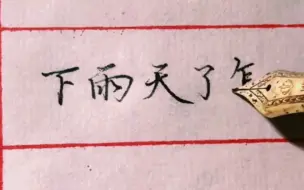 下雨天了